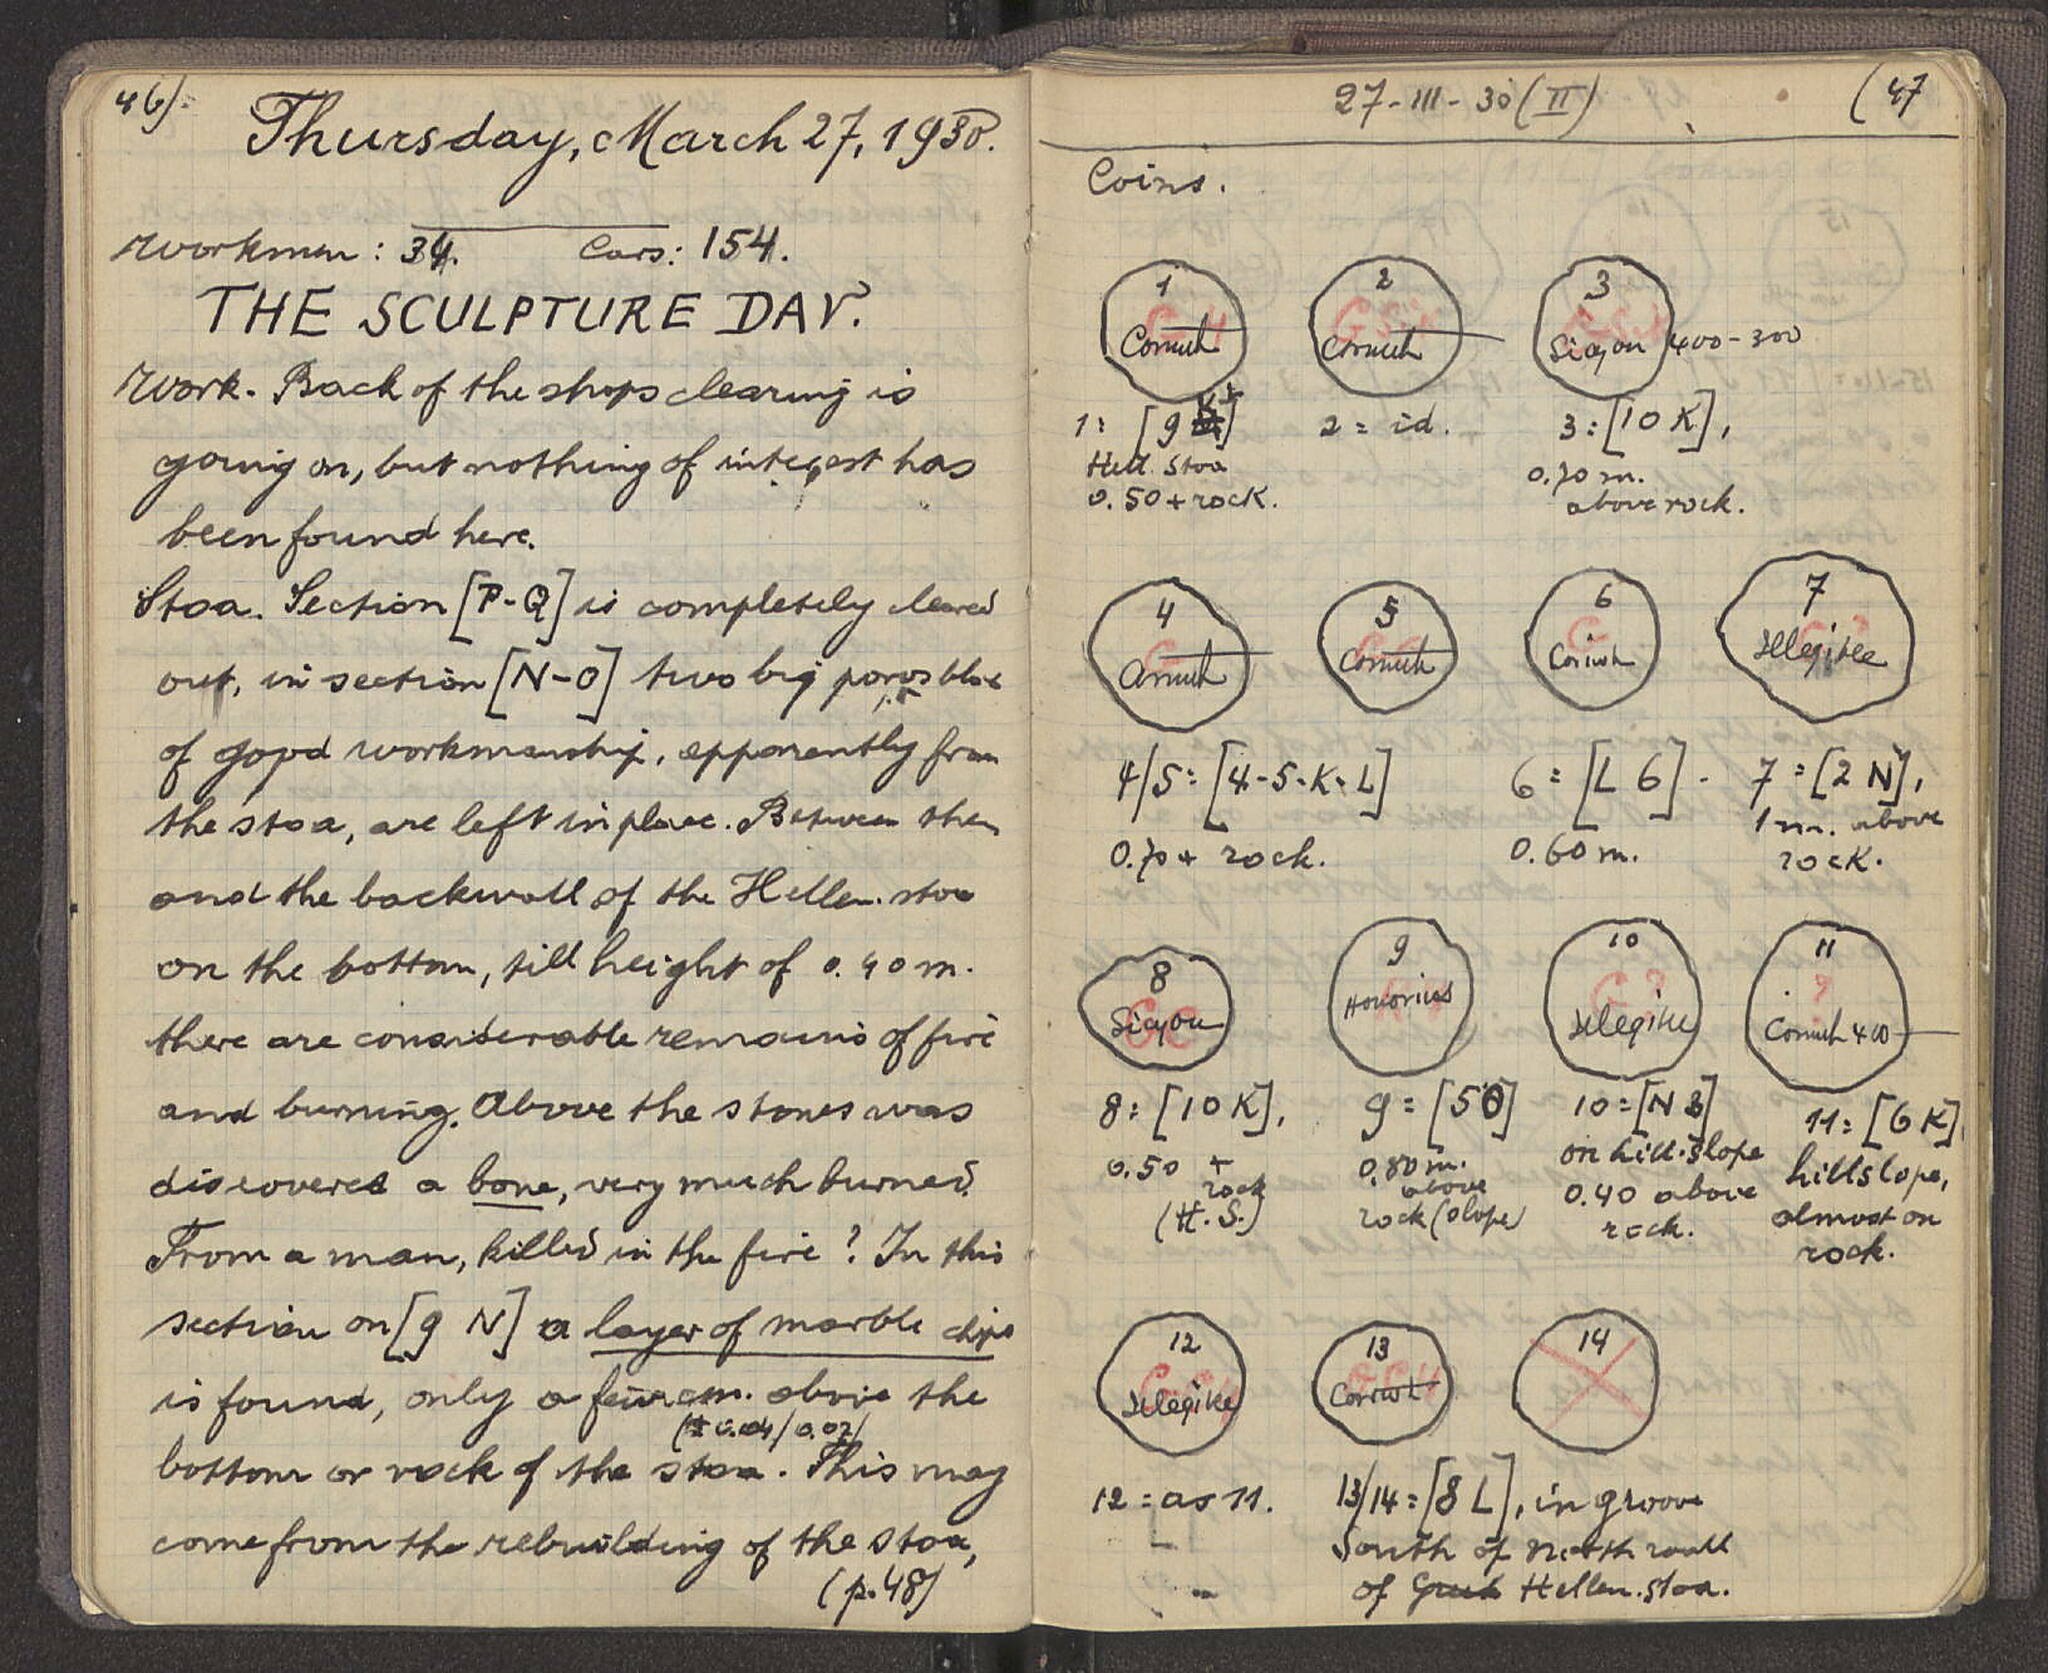 46).
Thursday, March 27, 1930.
Workmen: 34. Cars: 154.
THE SCULPTURE DAY.
Work. Back of the shops clearing is
going on, but nothing of interest has
been found here.
Stoa. Section [P-Q] is completely cleared
out, in section [N-O] two big poros
of good workmanship, apparently from
the stoa, are left in place. Between them
and the backwall of the Hellen. stoa
on the bottom, till height of 0.40 m.
there are considerable remains of fire
and burning. Above the stones was
discovered a bone, very much burned.
From a man, killed in the fire? In this
section on [9 N] a layer of marble chips
is found, only a few cm. above the
(± 0.04/0.07)
bottom or rock of the stoa. This may
come from the rebuilding of the stoa,
(p.48)
27-III-30 (II) (47
Coins.
1 Corinth
2 Corinth
3 Sicyon 400-300
1: [9 K]
Hell. Stoa
0.50 + rock.
2 = id.
3: [10 K],
0.70 m.
above rock.
4 Corinth
5 Corinth
6 Corinth
7 Illegible
4/5: [4-5-K-L]
0.70 + rock.
6 = [L 6].
0.60 m.
7 = [2 N],
1 m. above
rock.
8 Sicyon
9 Honorius
10 Illegible
11 Corinth 400
8: [10 K],
0.50 +
rock
(H. S.)
9 = [5 O]
0.80 m.
above
rock (slope)
10 = [N 3]
on hill-slope
0.40 above
rock.
11: [6 K]
hillslope,
almost on
rock.
12 Illegible
13 Corinth
14
12 = as 11.
13/14 = [8 L], in groove
South of North wall
of Greek Hellen. stoa.